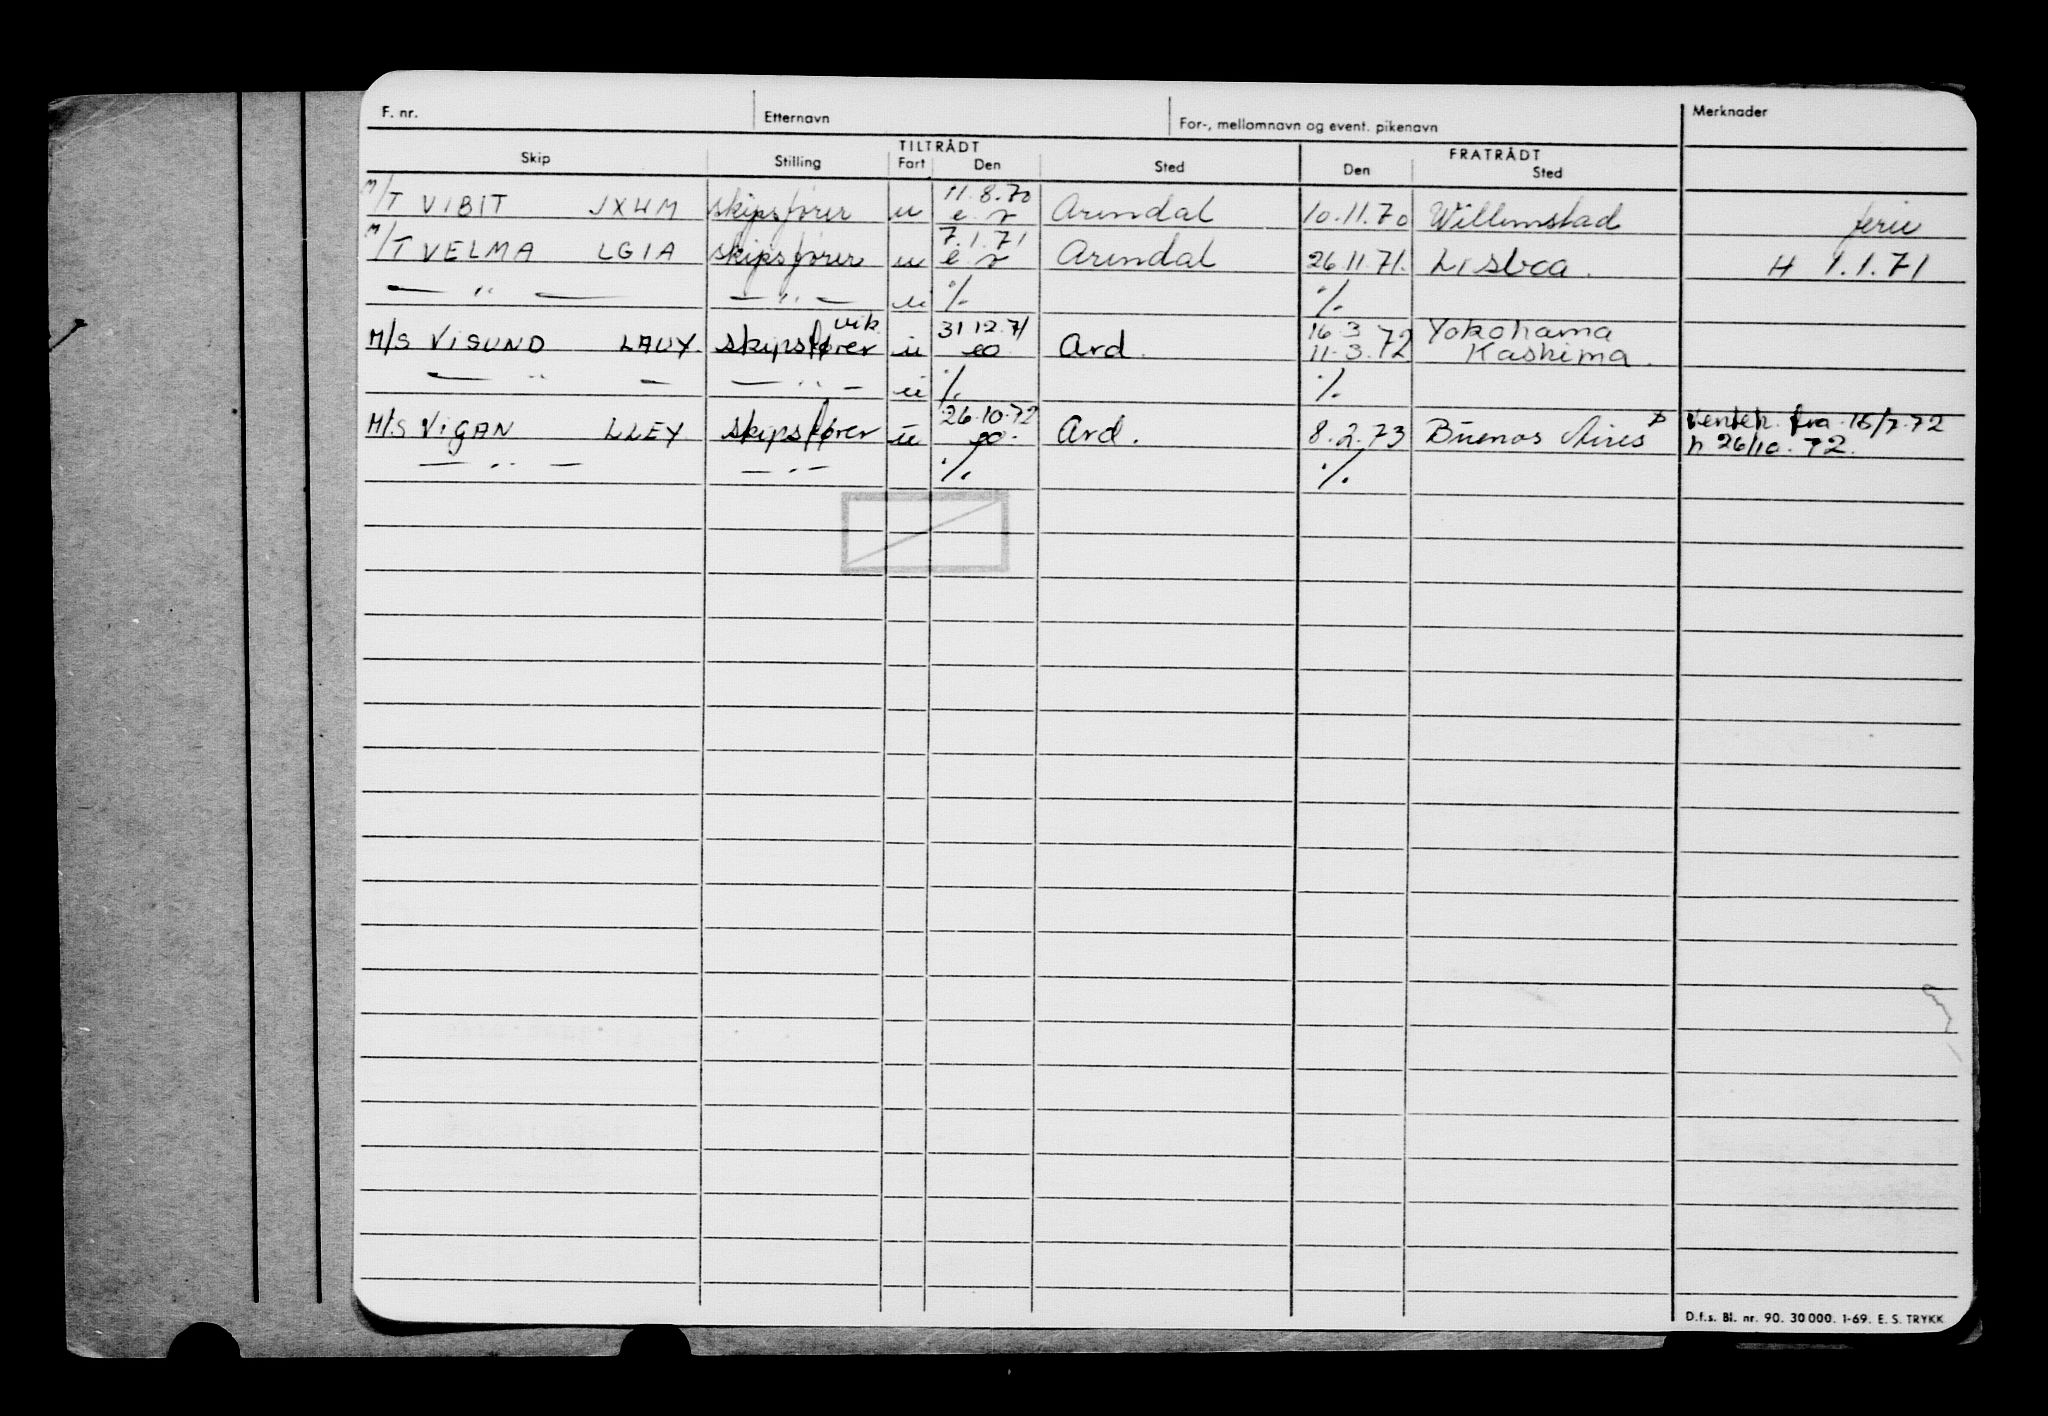 F. nr. Etternavn For-, mellomnavn og event. pikenavn Merknader
TILTRÅDT FRATRÅDT
Skip Stilling Fart Den Sted Den Sted
11.8.70
M/T VIBIT JXHM skipsfører u e.r Arendal 10.11.70 Willemstad ferie
7.1.71
M/T VELMA LGIA skipsfører u e r Arendal 26.11.71. Lisboa. H 1.1.71
— " — — " — u ./. ./.
vik. 31 12.71 16.3 Yokohama
M/S VISUND LAUY. skipsfører u eo. Ard. 11.3.72 Kashima.
— " — — " — u ./. ./.
26.10.72 Venteh. fra 15/7.72
M/S VIGAN LLEY skipsfører u eo. Ard. 8.2.73 Buenos Aires h 26/10.72.
— " — — " — ./. ./.
D.f.s. Bl. nr. 90. 30 000. 1-69. E. S. TRYKK